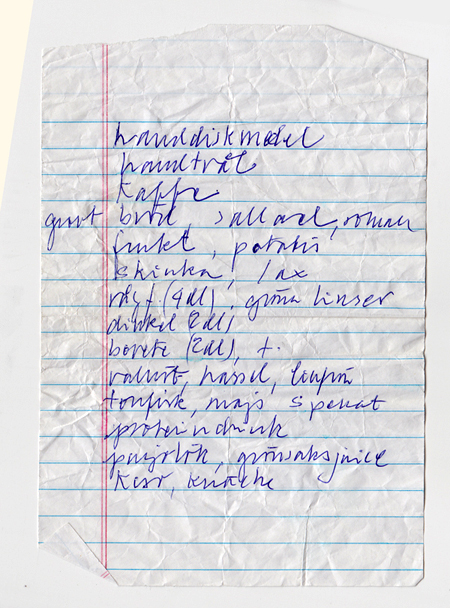 handdiskmedel
handtvål
kaffe
grovt bröd, sallad, roman
frukt, potatis
skinka, lax
råg f. (4dl), gröna linser
dinkel (2dl)
bovete (2dl), f.
valnöt, hassel,
tonfisk, majs spenat
proteindrink
purjolök, grönsaksjuice
keso, knäcke